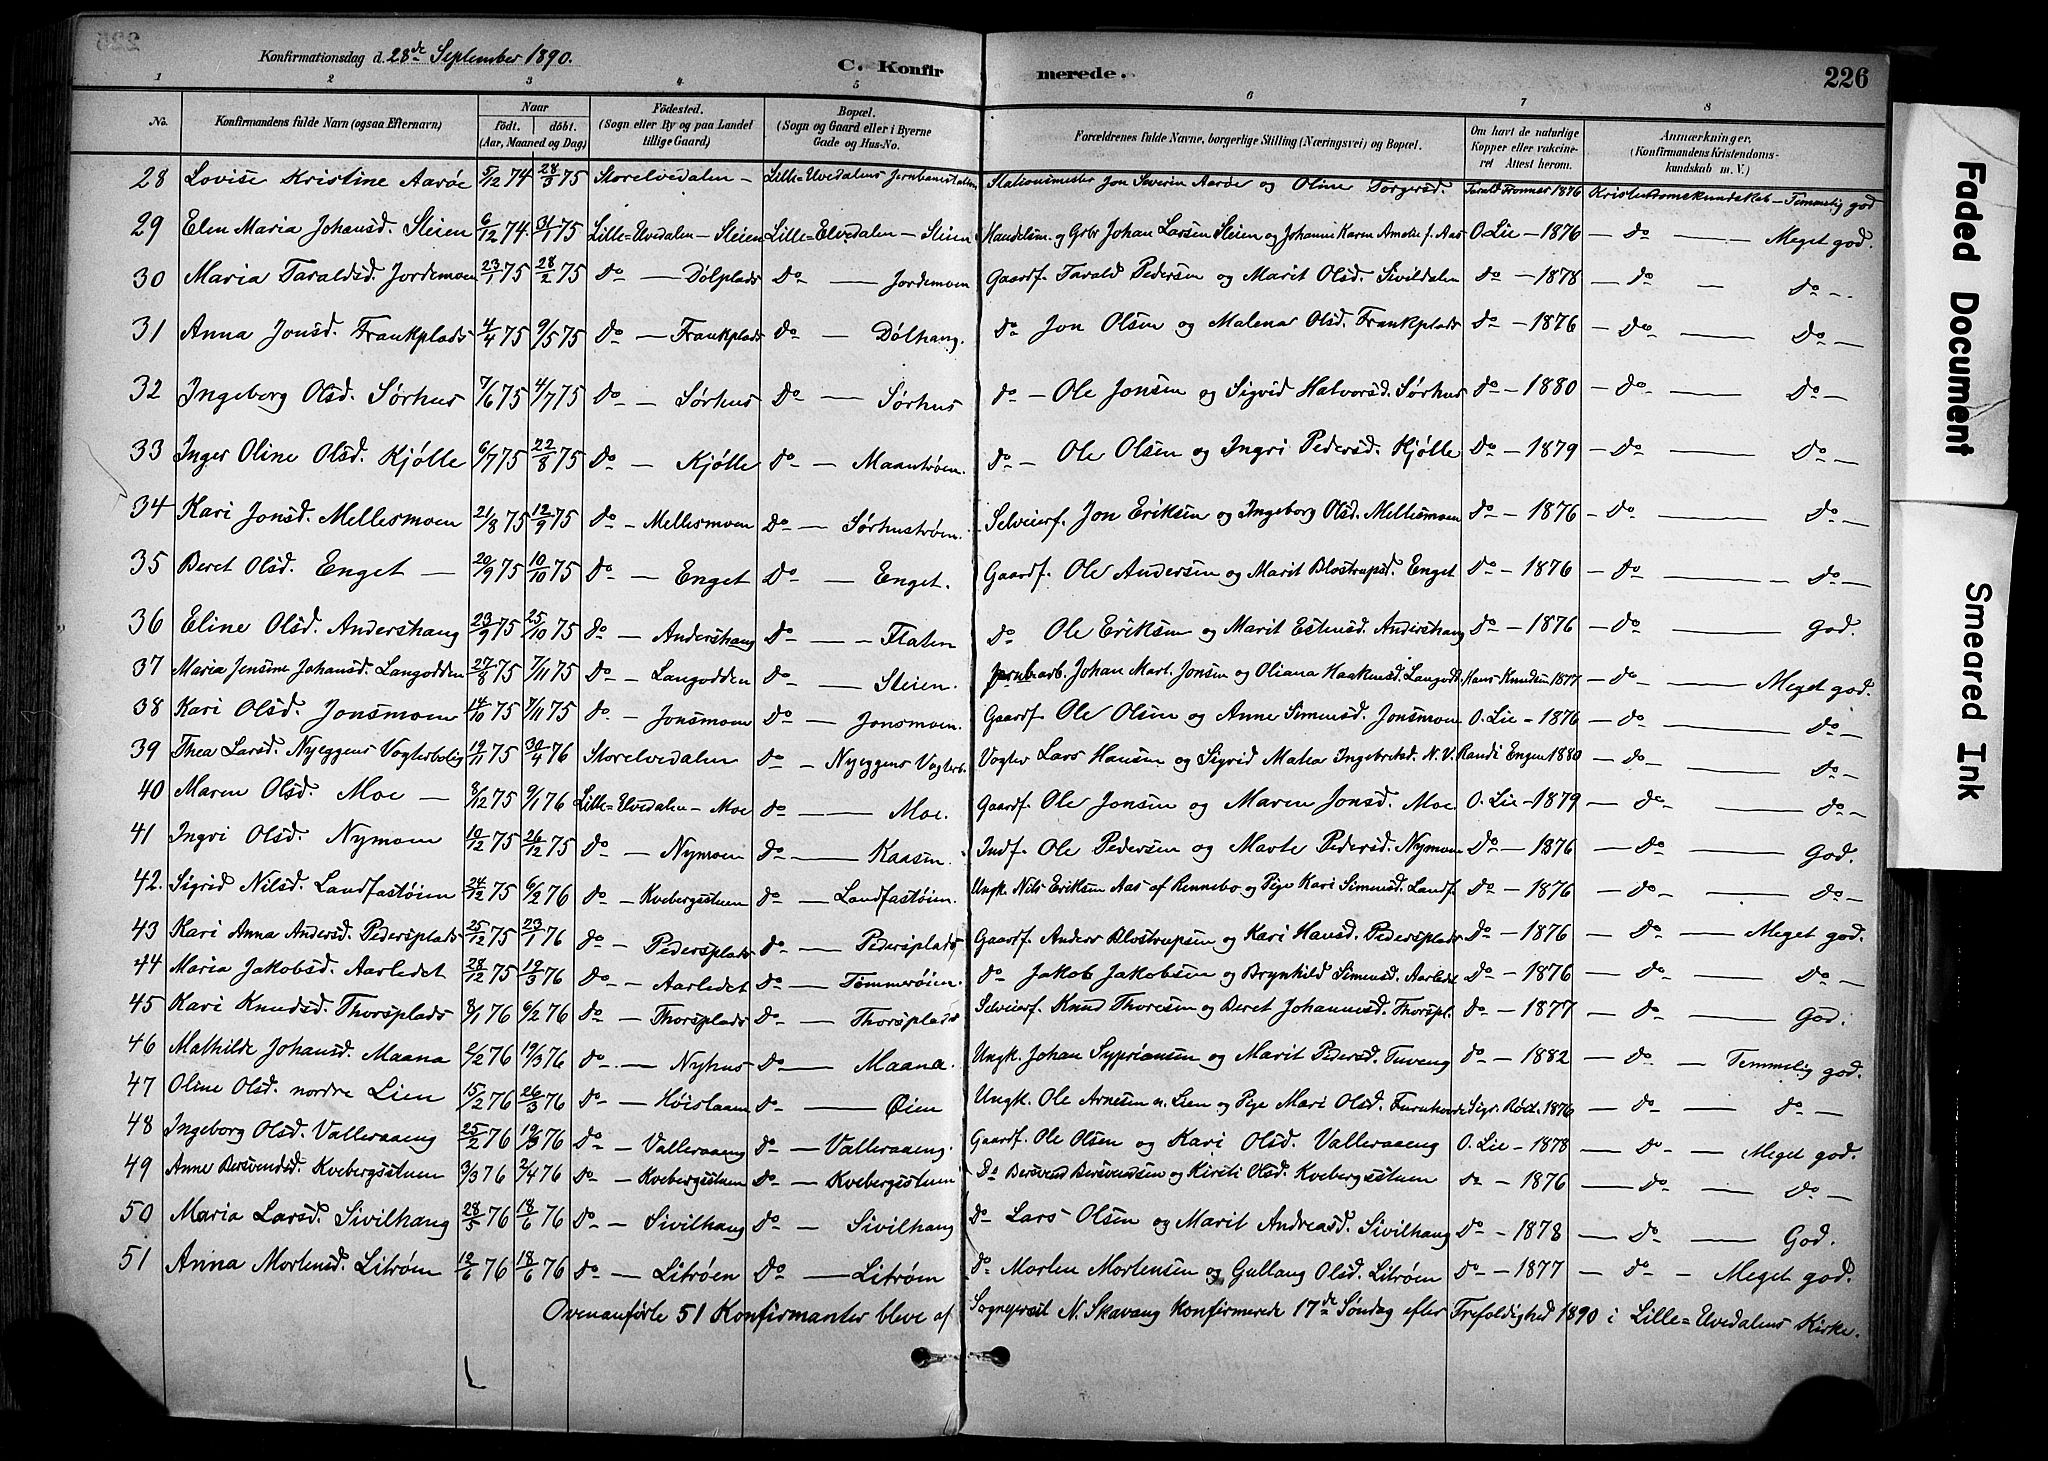 Konfirmationsdag d. 28de September 1890.
C. Konfirmerede.
226
1 2 3 4 5 6 7 8
No. Konfirmandens fulde Navn (ogsaa Efternavn) Naar født. døbt. (Aar, Maaned og Dag) Fødested. (Sogn eller By og paa Landet tillige Gaard) Bopæl. (Sogn og Gaard eller i Byerne Gade og Hus-No. Forældrenes fulde Navne, borgerlige Stilling (Næringsvei) og Bopæl. Om havt de naturlige Kopper eller vakcineret Attest herom. Anmærkninger, (Konfirmandens Kristendomskundskab m. V.)
28 Lovise Kristine Aarøe 5/12 74 28/3 75 Storelvedalen - Lille-Elvedalens Jernbanestation Stationsmester Jon Severin Aarøe og Oline Torgersd. Tarald Tronnes 1876 Kristendomskundskab - Temmelig god
29 Elen Maria Johansd. Steien 6/12 74. 31/1 75 Lille-Elvedalen - Steien Lille-Elvedalen - Steien Handelsm. og Grbr Johan Larsen Steien og Johanne Karen Amalie f. Aas O. Lie - 1876 - do - Meget god.
30 Maria Taraldsd. Jordemoen 23/1 75 28/2 75 do - Dølplads do - Jordemoen Gaardf. Tarald Pedersen og Marit Olsd. Sivildalen do - 1878 - do - do -
31 Anna Jonsd. Frankplads 4/4 75 9/5 75 do - Frankplads do - Dølhaug. do Jon Olsen og Malena Olsd. Frankplads do - 1876 - do - do -
32 Ingeborg Olsd. Sørhus 7/6 75 4/7 75 do - Sørhus do - Sørhus do - Ole Jonsen og Sigrid Halvorsd. Sørhus do - 1880 - do - do -
33 Inger Oline Olsd. Kjølle 6/7 75 22/8 75 do - Kjølle do - Maantrøen. do - Ole Olsen og Ingri Pedersd. Kjølle do - 1879 - do - do -
34 Kari Jonsd. Mellesmoen 21/8 75 12/9 75 do - Mellesmoen do - Sørhustrøen. Selveierf. Jon Eriksen og Ingeborg Olsd. Mellesmoen do - 1876 - do - do -
35 Beret Olsd. Enget - 20/9 75 10/10 75 do - Enget do - Enget. Gaardf. Ole Andersen og Marit Blostrupsd. Enget do - 1876 - do - do -
36 Eline Olsd. Andershaug 23/9 75 25/10 75 do - Andershaug do - Flaten do Ole Eriksen og Marit Estensd. Andershaug do - 1876 - do - God.
37 Maria Jensine Johansd. Langodden 27/8 75 7/11 75 do - Langodden do - Steien. Jernbarb. Johan Mart. Jonsen og Oliana Haakensd. Langodd. Hans Knudsen 1877 - do - Meget god.
38 Kari Olsd. Jonsmoen 14/10 75 7/11 75 do - Jonsmoen do - Jonsmoen. Gaardf. Ole Olsen og Anne Simensd. Jonsmoen O. Lie - 1876 - do - do -
39 Thea Larsd. Nyeggens Vogterbolig 19/11 75 30/4 76 Storelvedalen do - Nyeggens Vogterb. Vogter Lars Hansen og Sigrid Matea Ingebretsd. N. V. Randi Engen 1880 - do - do -
40 Maren Olsd. Moe - 8/12 75 9/1 76 Lille-Elvedalen - Moe do - Moe. Gaardf. Ole Jonsen og Maren Jonsd. Moe O. Lie - 1879 - do - do -
41 Ingri Olsd. Nymoen 10/12 75 26/12 75 do - Nymoen do - Kaasen. Indf. Ole Pedersen og Marte Pedersd. Nymoen do - 1876 - do - God.
42. Sigrid Nilsd. Landfastøien 24/12 75 6/2 76 do - Kvebergsstuen do - Landfastøien. Ungk. Nils Eriksen Aas af Rennebo og Pige Kari Simensd. Landf. do - 1876 - do - do -
43 Kari Anna Andersd. Pedersplads 25/12 75 23/1 76 do - Pedersplads do - Pedersplads Gaardf. Anders Blostrupsen og Kari Hansd. Pedersplads do - 1876 - do - Meget god.
44 Maria Jakobsd. Aarledet 28/12 75 19/3 76 do - Aarledet do - Tømmerøien. do Jakob Jakobsen og Brynhild Simensd. Aarledet do - 1876 - do - do -
45 Kari Knudsd. Thorsplads 8/1 76 6/2 76 do - Thorsplads do - Thorsplads Selveierf. Knud Thoresen og Beret Johannesd. Thorspl. do - 1877 - do - God.
46 Mathilde Johansd. Maana 2/2 76 19/3 76 do - Nyhus do - Maana. Ungk. Johan Syprianson og Marit Pedersd. Tuveng do - 1882 - do - Temmelig god.
47 Oline Olsd. nordre Lien 15/2 76 26/3 76 do - Høistaaen do - Øien Ungk. Ole Arnesen n. Lien og Pige Mari Olsd. Furuhovde Sigr. Røst. 1876 - do - do -
48 Ingeborg Olsd. Valleraaeng 25/2 76 19/3 76 do - Valleraaeng do - Valleraaeng. Gaardf. Ole Olsen og Kari Olsd. Valleraaeng O. Lie - 1878 - do - Meget god.
49 Anne Bersvendsd. Kvebergsstuen 3/3 76 2/4 76 do - Kvebergsstuen do - Kvebergsstuen do Bersvend Bersvendsen og Kirsti Olsd. Kvebergsstuen do - 1876 - do - do -
50 Maria Larsd. Sivilhaug 28/5 76 18/6 76 do - Sivilhaug do - Sivilhaug do - Lars Olsen og Marit Andreasd. Sivilhaug do - 1878 - do - God.
51 Anna Mortensd. Litrøen 12/6 76 18/6 76 do - Litrøen do - Litrøen do Morten Mortensen og Gullaug Olsd. Litrøen do - 1877 - do - Meget god.
Ovenanførte 51 Konfirmanter bleve af Sogneprest N. Skavang Konfirmerede 17de Søndag efter Trefoldighed 1890 i Lille-Elvedalens Kirke.
Faded Document
Smeared Ink